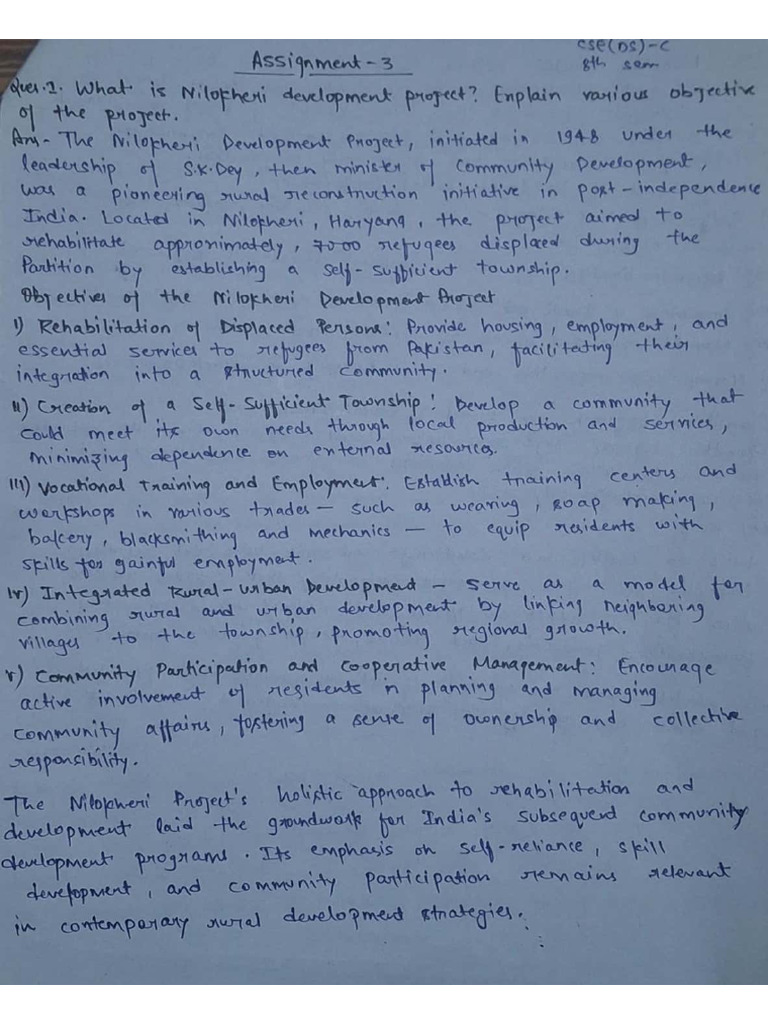 CSE(DS)-C
Assignment-3
8th sem
Ques.1. What is Nilokheri development project? Explain various objective
of the project.
Ans- The Nilokheri Development Project, initiated in 1948 under the
leadership of S.K.Dey, then minister of Community Development,
was a pioneering rural reconstruction initiative in post-independence
India. Located in Nilokheri, Haryana, the project aimed to
rehabilitate approximately, 7000 refugees displaced during the
Partition by establishing a self-sufficient township.
Objectives of the Nilokheri Development Project
i) Rehabilitation of Displaced Persons: Provide housing, employment, and
essential services to refugees from Pakistan, facilitating their
integration into a structured community.
ii) Creation of a Self-Sufficient Township: Develop a community that
could meet its own needs through local production and services,
minimizing dependence on external resources.
iii) Vocational Training and Employment: Establish training centers and
workshops in various trades — such as weaving, soap making,
bakery, blacksmithing and mechanics — to equip residents with
skills for gainful employment.
iv) Integrated Rural-Urban Development - serve as a model for
combining rural and urban development by linking neighboring
villages to the township, promoting regional growth.
v) Community Participation and Cooperative Management: Encourage
active involvement of residents in planning and managing
community affairs, fostering a sense of ownership and collective
responsibility.
The Nilokheri Project's holistic approach to rehabilitation and
development laid the groundwork for India's subsequent community
development programs. Its emphasis on self-reliance, skill
development, and community participation remains relevant
in contemporary rural development strategies.